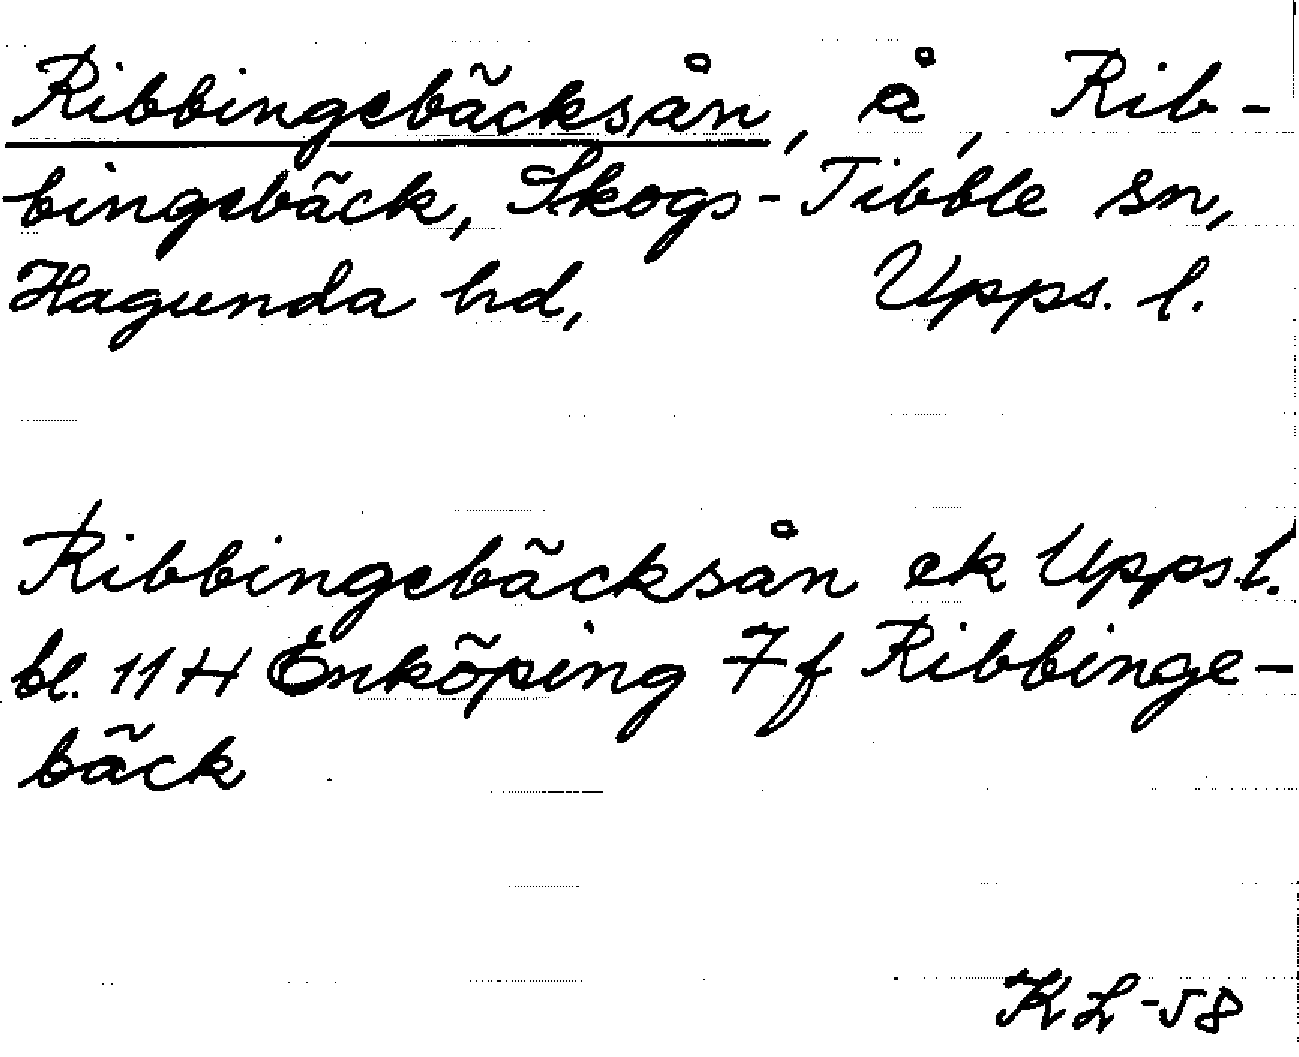 Ribbingebäcksån, å, Rib-
bingebäck, Skogs-Tibble sn,
Hagunda hd, Upps. l.
Ribbingebäcksån ek Upps l.
bl. 11 H Enköping 7f Ribbinge-
bäck
KL-58